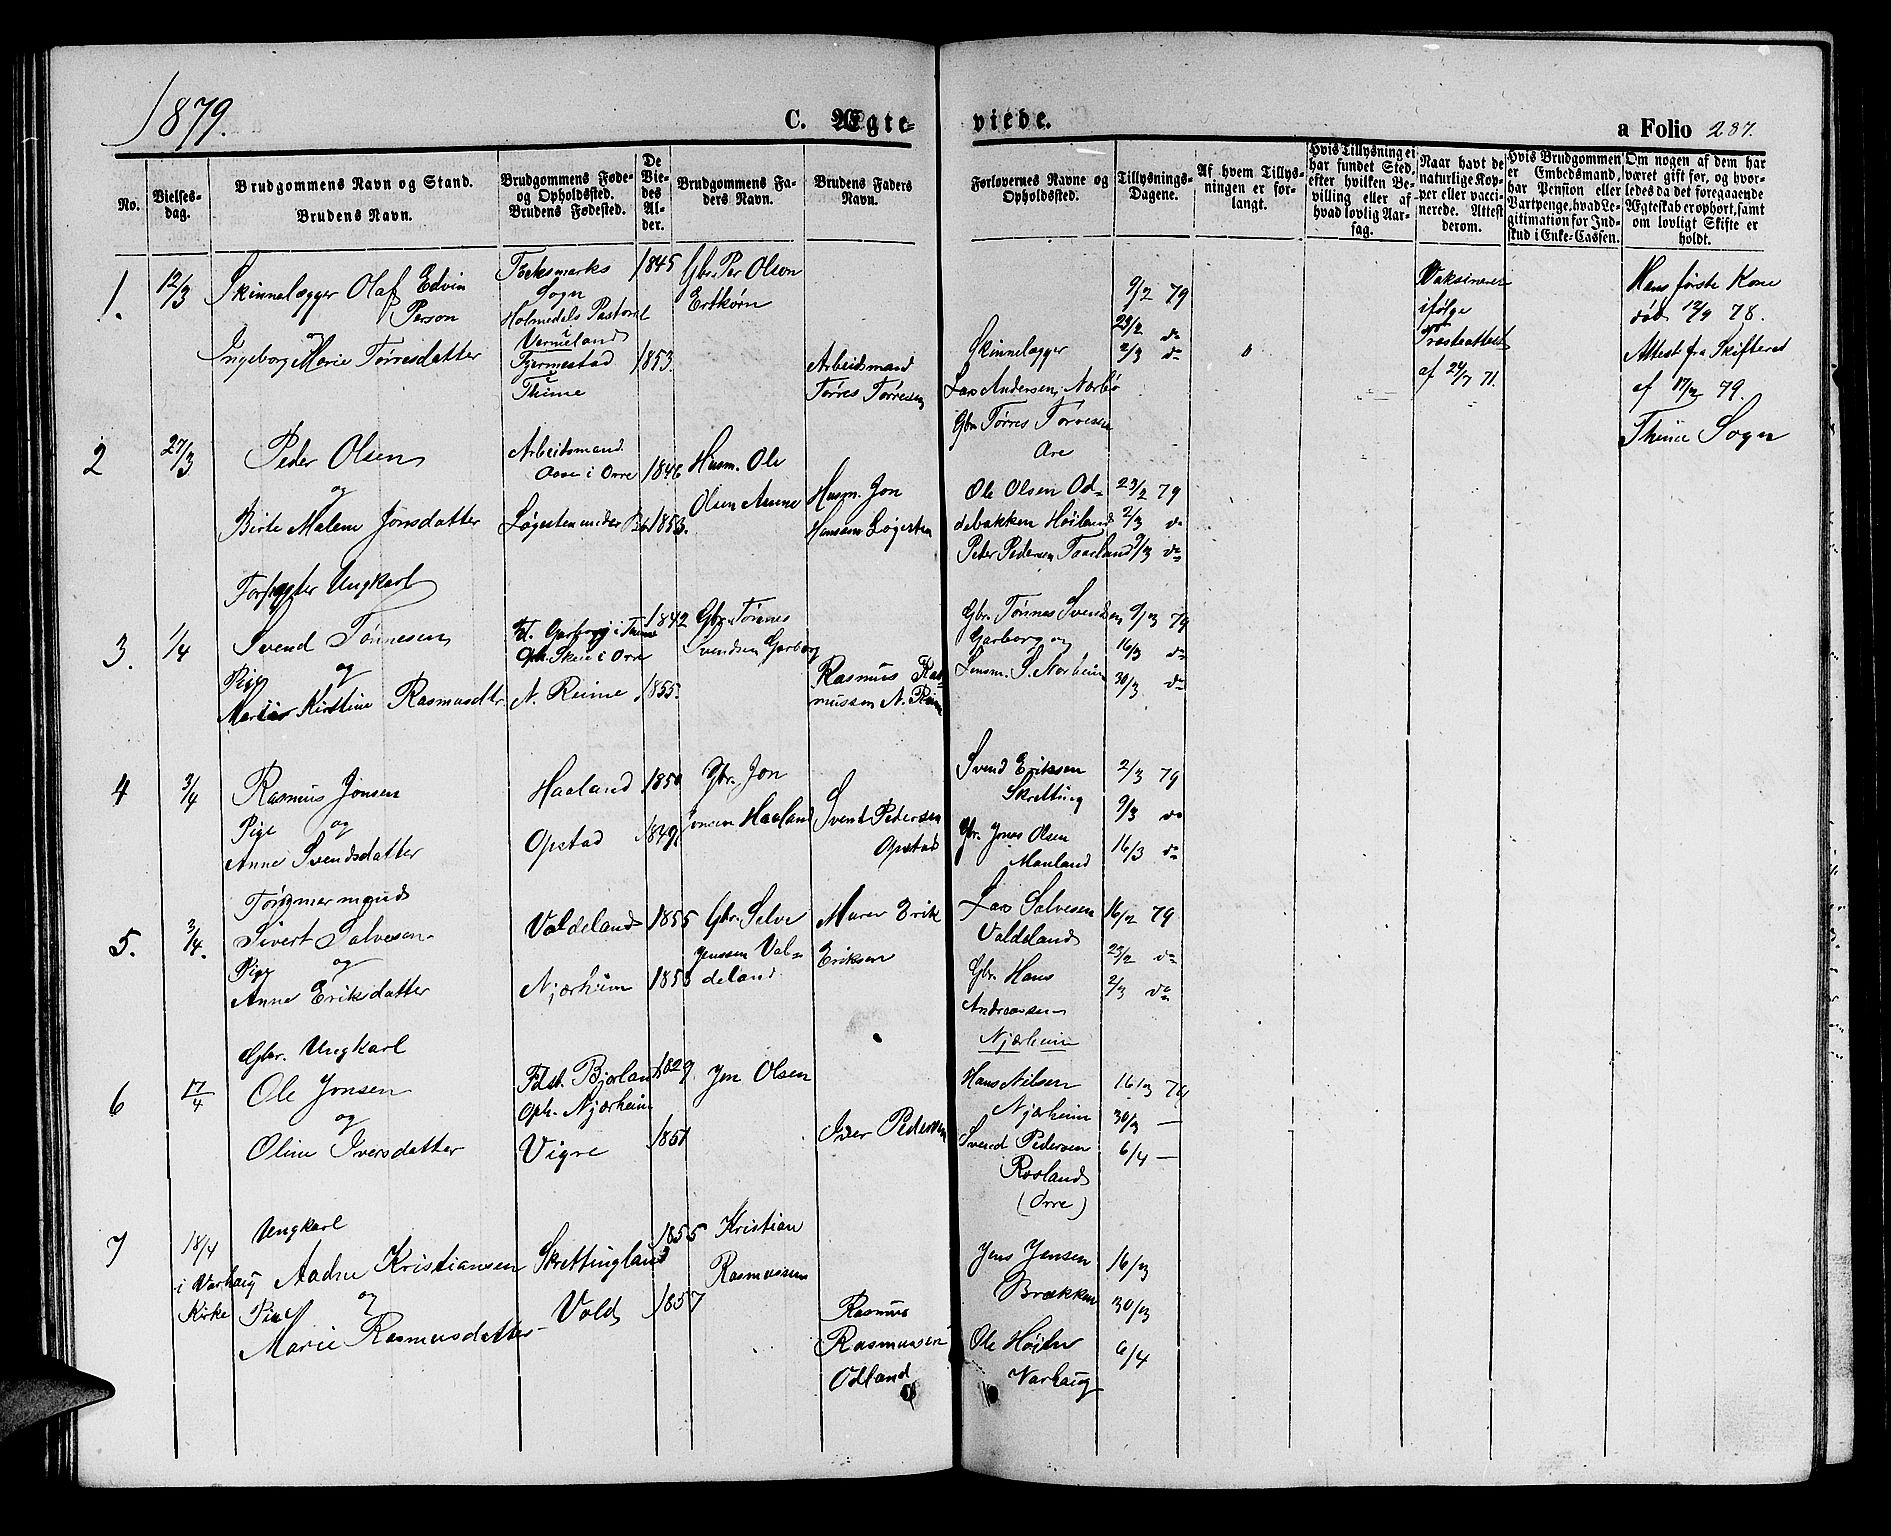 1879.
C. Ægte-
viede.
a Folio 287.
No.
Vielses-
dag.
Brudgommens Navn og Stand.
Brudens Navn.
Brudgommens Føde-
og Opholdssted.
Brudens Fødested.
De
Vie-
des
Al-
der.
Brudgommens Fa-
ders Navn.
Brudens Faders
Navn.
Forlovernes Navne og
Opholdssted.
Tillysnings-
Dagene.
Af hvem Tillys-
ningen er for-
langt.
Hvis Tillysning ei
har fundet Sted,
efter hvilken Be-
villing eller af
hvad lovlig Aar-
sag.
Naar havt de
naturlige Kop-
per eller vacci-
nerede. Attest
derom.
Hvis Brudgommen
er Embedsmand,
har Pension eller
Vartpenge, hvad Le-
gitimation for Ind-
skud i Enke-Cassen.
Om nogen af dem har
været gift før, og hvor-
ledes da det foregaaende
Ægteskab er ophørt, samt
om lovligt Skifte er
holdt.
1.
12/3
Skinnelægger Olaf Edvin
Person
og
Ingeborg Marie Tørresdatter
Sogn
Holmedals Pastorat
i
Vermeland
Tjermestad
Thime
1845
1853.
Gbr. Per Olson
Ertkörn
Arbeidsmand
Tørres Tørresen
Skinnelægger
Lars Andersen, Nærbø
Gbr. Tørres Tørresen
Are
9/2 79
23/2 do
2/3 do
Vaksineret
ifølge
Præsteattest
af 24/7 71.
Hans første Kone
død 12/9 78.
Attest fra Skifteret
af 17/2 79.
Thime Sogn
2
27/3
Peder Olsen
og
Birte Malene Jonsdatter
Arbeidsmand.
Aase i Orre
Løgesten under
1846
1853.
Husm. Ole
Olsen Aasene
Husm. Jon
Hansen Løgesten
Ole Olsen Od-
debakken Høiland
Peter Pedersen Taaeland
23/2 79
2/3 do
9/3 do
3.
1/4
Forpagter Ungkarl
Svend Tønnesen
og
Pige
Martine Kirstine Rasmusdtr.
Fd. Garborg i Thime
Oph. Skeie i Orre
N. Reime
1842
1855.
Gbr. Tønnes
Svendsen Garborg
Rasmus Ras-
mussen N. Reime
Gbr. Tønnes Svendsen
Garborg og
Lensm. S. Norheim
9/3 79
16/3 do
30/3 do
4
3/4
Rasmus Jonsen
Pige og
Anne Svendsdatter
Haaland
Opstad
1850
1849
Gbr. Jon
Jonsen Haaland
Svend Pedersen
Opstad
Svend Eriksen
Skretting
Gbr. Jonas Olsen
Mauland
2/3 79
9/3 do
16/3 do
5.
3/4.
Tømmermand
Sivert Salvesen
Pige og
Anne Eriksdatter
Valdeland
Njærheim
1855
1858
Gbr. Selve
Jenssen Val-
deland.
Murer Erik
Eriksen
Lars Salvesen
Valdeland
Gbr. Hans
Andreassen
Njærheim
16/2 79
23/2 do
2/3 do
6
17/4
Gbr. Ungkarl
Ole Jonsen
og
Oline Iversdatter
Fdst. Bjorland
Oph. Njærheim
Vigre
1829
1851
Jon Olsen
Iver Pedersen
Hans Nilsen
Njærheim
Svend Pedersen
Rosland
(Orre)
16/3 79
30/3 —
6/4 —
7
18/4
i Varhaug
Kirke
Ungkarl
Aadne Kristiansen
Pige og
Marie Rasmusdatter
Skrettingland
Vold
1855
1857
Kristian
Rasmussen
Rasmus
Rasmussen
Odland
Jens Jensen
Brækken
Ole Høiland
Varhaug
16/3
30/3
6/4